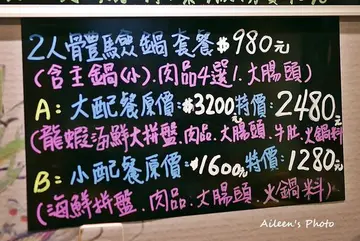 2人體驗鍋套餐$980元
(含主鍋(小).肉品4選1.大腸頭)
A:大配餐原價:$3200特價:2480元
(龍蝦海鮮大拼盤.肉品.大腸頭.牛肚.火鍋料)
B:小配餐原價:$1600元特價:1280元
(海鮮拼盤.肉品.大腸頭.火鍋料)
Aileen's Photo